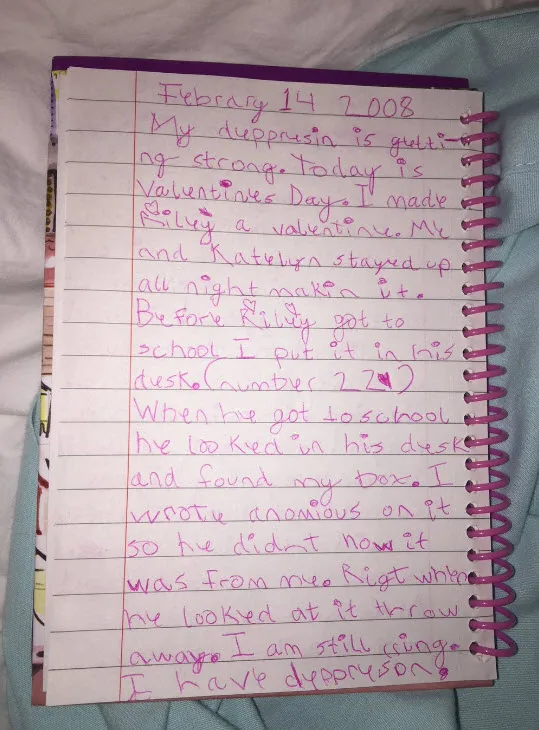 Febrary 14 2008
My deppresin is getti-
ng strong. Today is
Valentines Day. I made
Riley a valentine. Me
and Katelyn stayed up
all night makin it.
Before Riley got to
school I put it in his
desk. (number 22)
When he got to school
he looked in his desk
and found my box. I
wrote anomious on it
so he didnt now it
was from me. Rigt when
he looked at it throw
away. I am still cring.
I have deppreson.